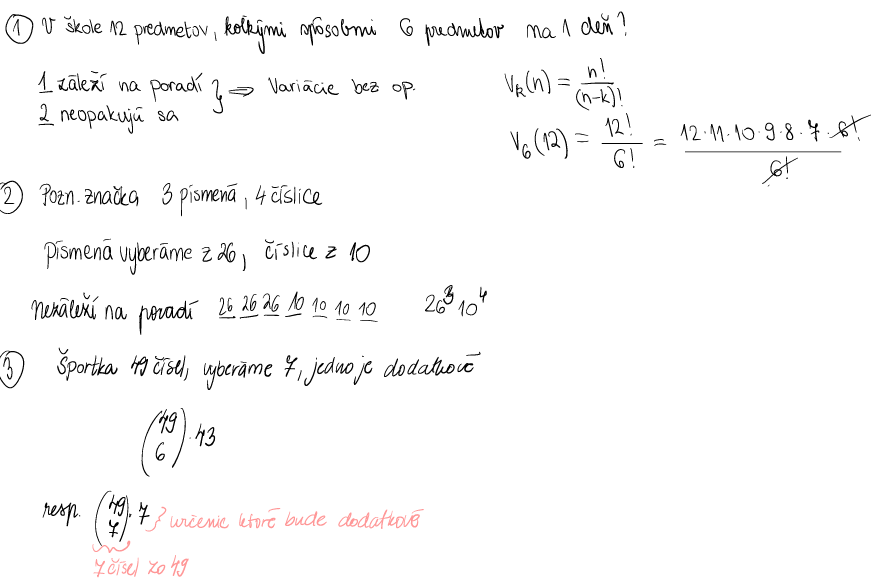 ① V škole 12 predmetov, koľkými spôsobmi 6 predmetov na 1 deň?
1 záleží na poradí } ⇒ Variácie bez op.
2 neopakujú sa
V_k(n) = n!/(n-k)!
V_6(12) = 12!/6! = 12·11·10·9·8·7·6!/6!
② Pozn. značka 3 písmená, 4 číslice
písmená vyberáme z 26, číslice z 10
Nezáleží na poradí 26 26 26 10 10 10 10 26³ 10⁴
③ Športka 49 čísel, vyberáme 7, jedno je dodatkové
(49 6) · 43
resp. (49 7) · 7 } určenie ktoré bude dodatkové
7 čísel zo 49